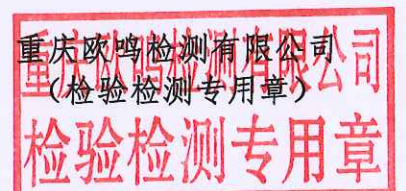 重庆欧鸣检测有限公司
（检验检测专用章）
重庆欧鸣检测有限公司
检验检测专用章